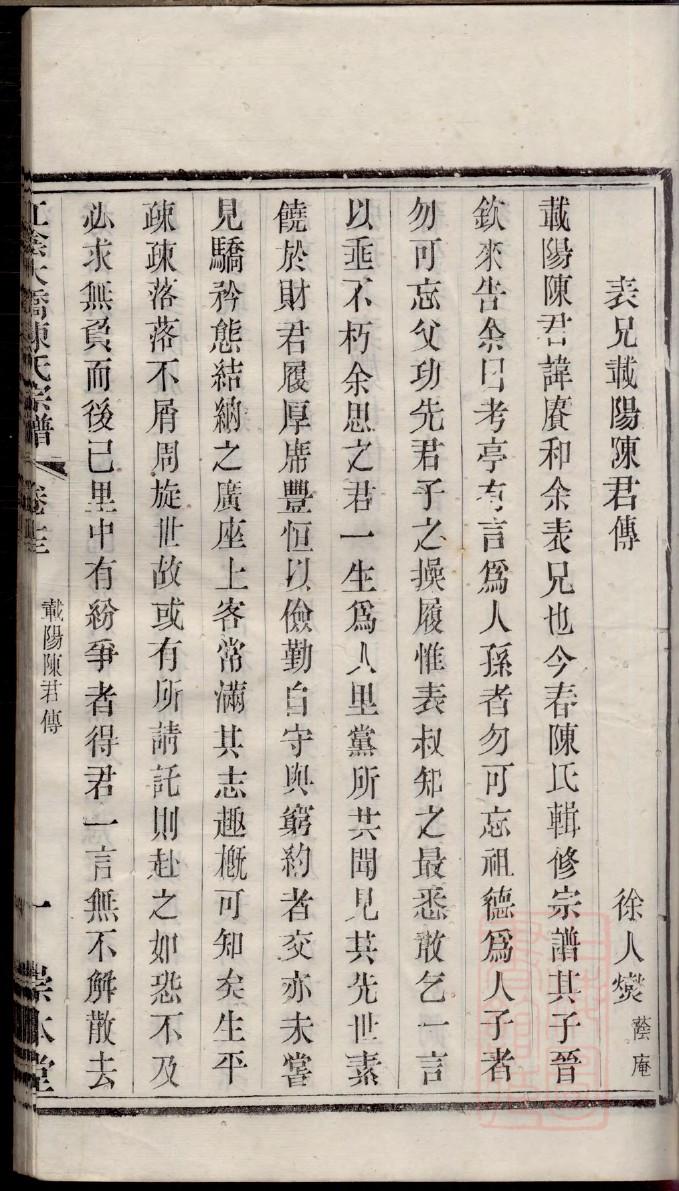 表兄載陽陳君傳　徐人爕蔭庵
載陽陳君諱賡和余表兄也今春陳氏輯修宗譜其子晉
欽來告余曰考亭有言爲人孫者勿可忘祖德爲人子者
勿可忘父功先君子之操履惟表叔知之最悉敢乞一言
以垂不朽余思之君一生爲人里黨所共聞見其先世素
饒於財君履厚席豐恒以儉勤自守與窮約者交亦未嘗
見驕矜態結納之廣座上客常滿其志趣槪可知矣生平
疎疎落落不屑周旋世故或有所請託則赴之如恐不及
必求無負而後已里中有紛爭者得君一言無不解散去
江陰大橋陳氏宗譜　卷十三　載陽陳君傳　一　崇本堂